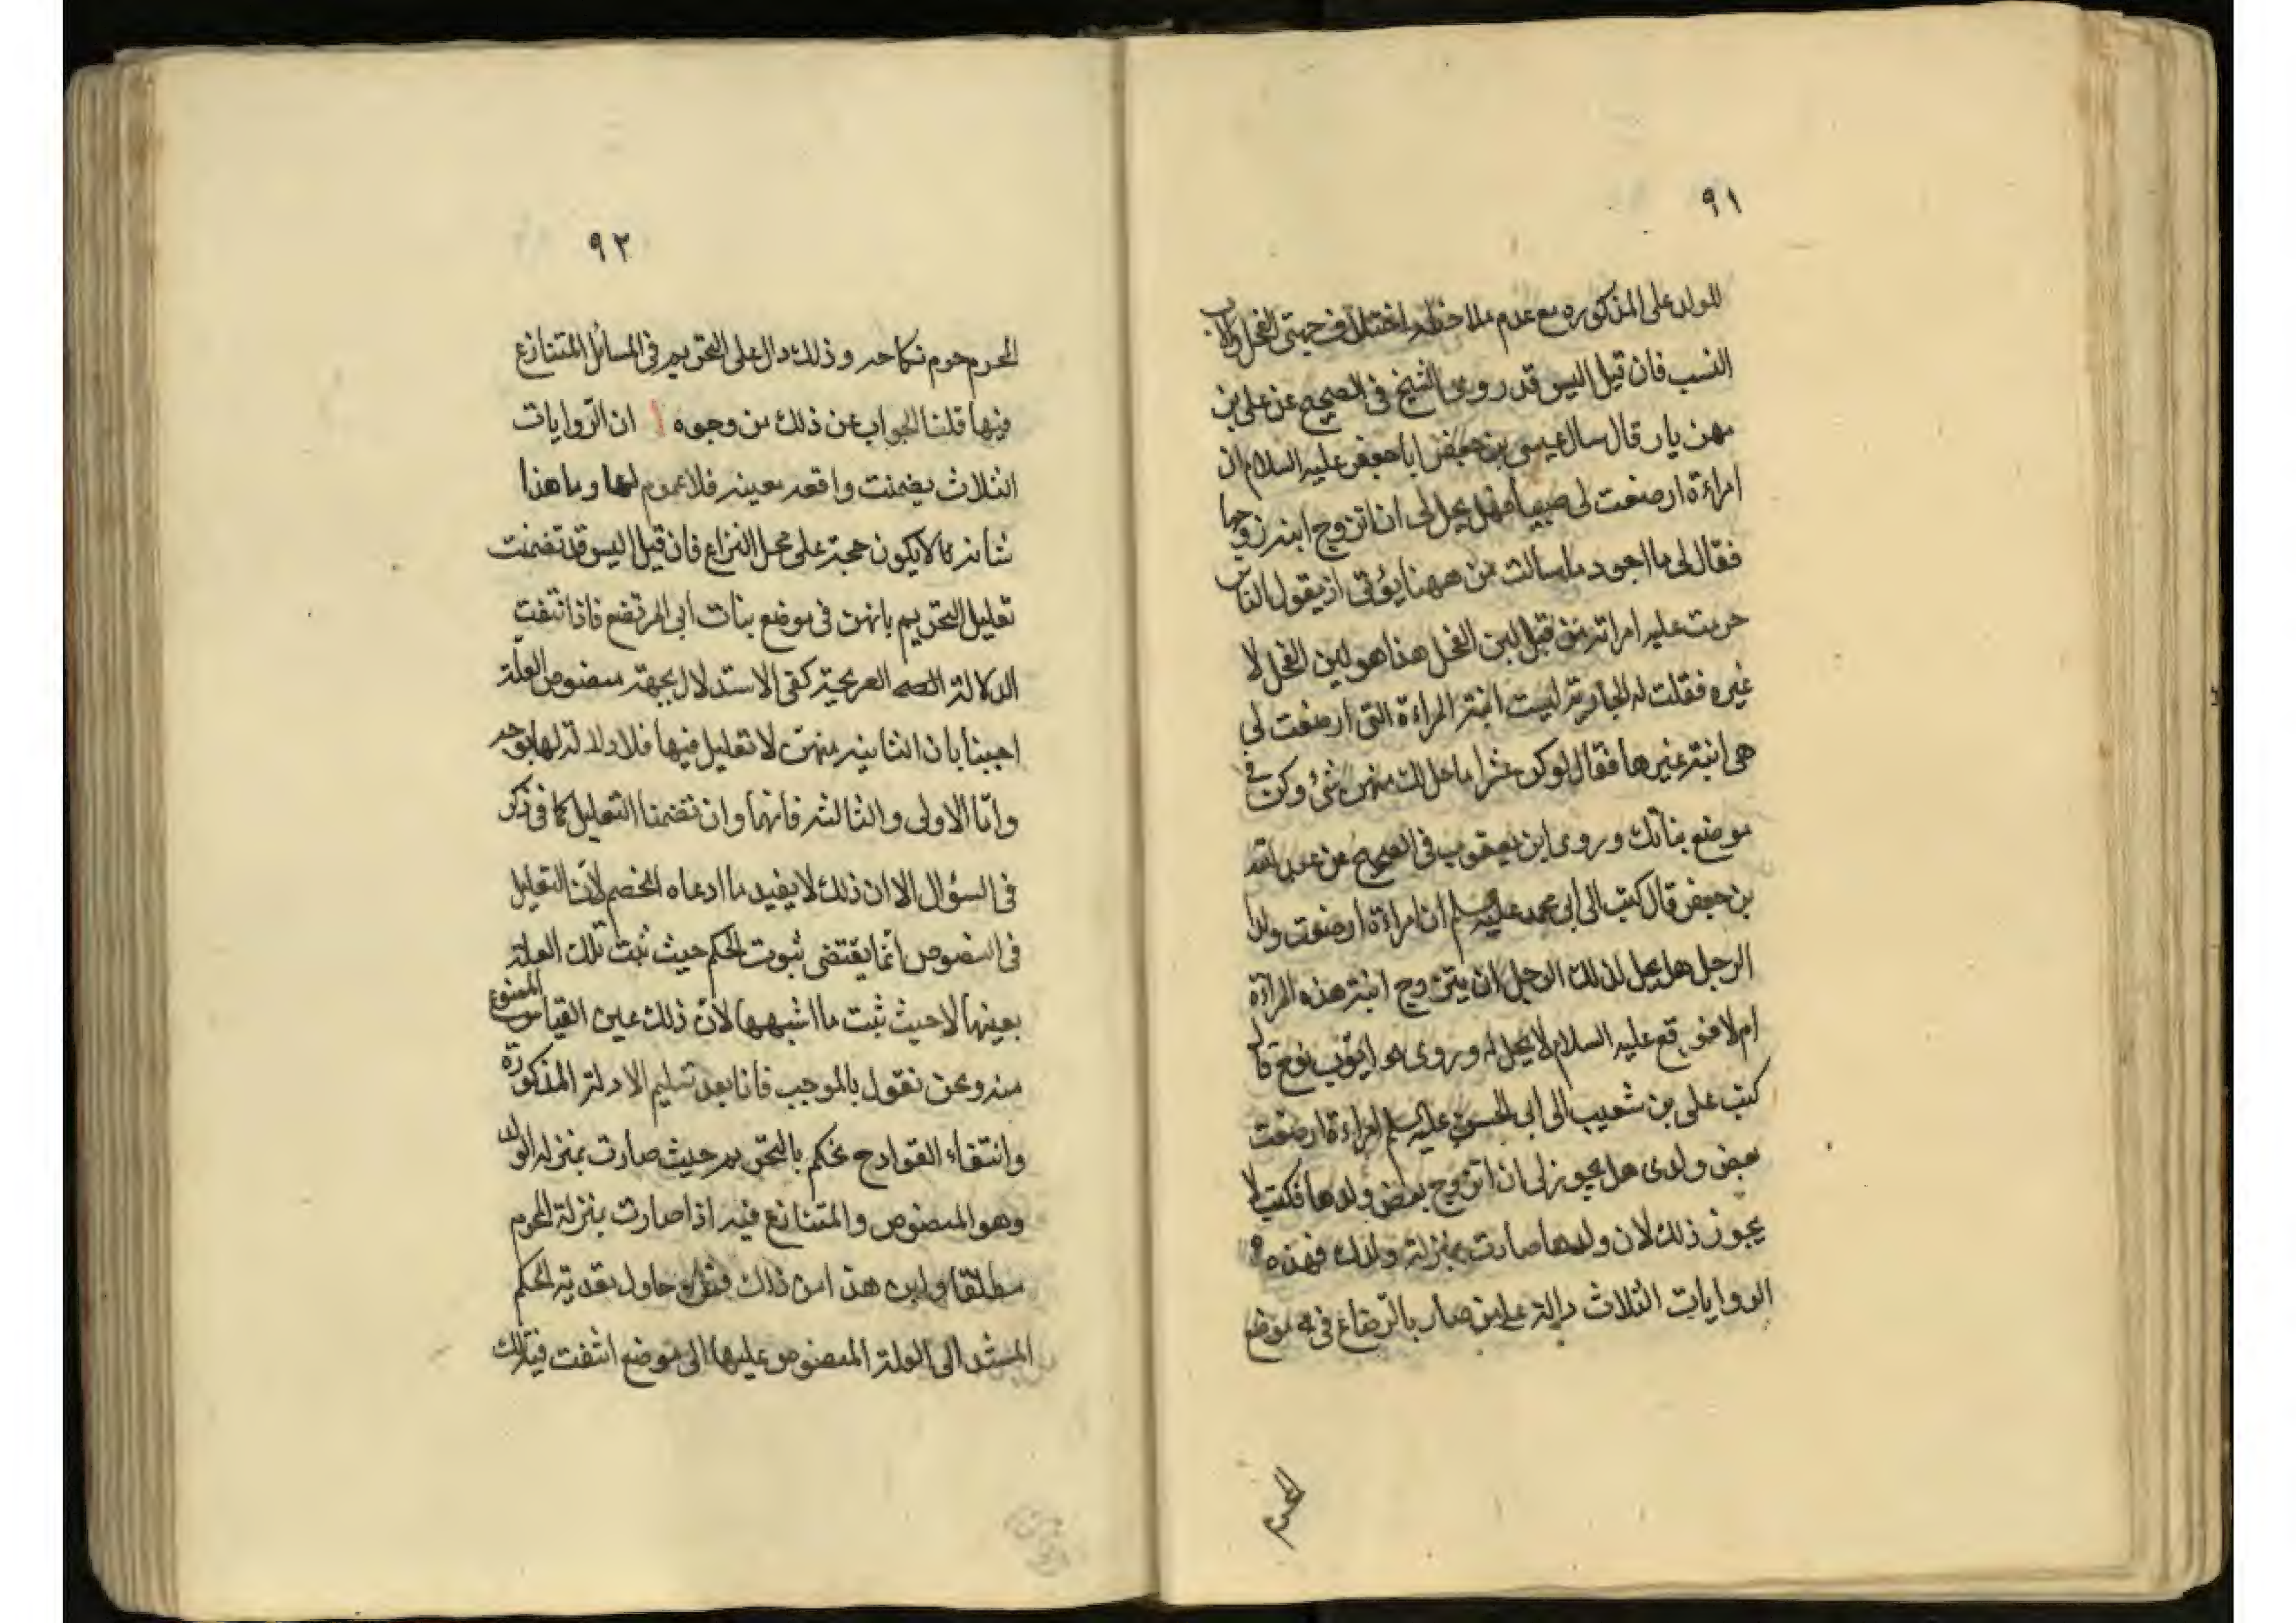 ٩١
للولد على المذكوره مع عدم ملاحظه اختلاف جهتى الفحل والاب
النسب فان قيل اليس قد روى الشيخ فى الصحيح عن على بن
مهزيار قال سال عيسى بن جعفر ابا جعفر عليه السلام ان
امراءة ارضعت لى صبيا فهل يحل لى ان اتزوج ابنه زوجها
فقال لى ما اجود ما سالت من ههنا يؤتى ان يقول الناس
حرمت عليه امراته من قبل لبن الفحل هذا هو لبن الفحل لا
غيره فقلت له الجاريه ليست ابنة المراءة التى ارضعت لى
هى ابنة غيرها فقال لو كن عشرا ما حل لك منهن شئ وكن فى
موضع بناتك وروى ابن يعقوب فى الصحيح عن عبد الله
بن جعفر قال كتب الى ابى محمد عليه سلم ان امراءة ارضعت ولد
الرجل هل يحل لذلك الرجل ان يتزوج ابنة هذه المراءة
ام لا فوقع عليه السلام لا يحل له وروى هو ايوب بن نوح قال
كتب على بن شعيب الى ابى الحسن عليه سلم امراءة ارضعت
بعض ولدى هل يجوز لى ان اتزوج بعض ولدها فكتب لا
يجوز ذلك لان ولدها صارت بمنزلة ولدك فهذه
الروايات الثلاث دالة على من صار بالرضاع فى موضع
المحرم
٩٢
المحرم حرم نكاحه وذلك دال على التحريم فى المسائل المتنازع
فيها قلنا الجواب عن ذلك من وجوه ا ان الروايات
الثلاث يضمنت واقعه معينه فلا عموم لها وما هذا
شانه لا يكون حجة على محل النزاع فان قيل اليس قد تضمنت
تعليل التحريم بانهن فى موضع بنات ابى المرتضع فاذا انتفت
الدلالة الصريحية كفى الاستدلال بجهة منصوص العلة
اجبنا بان الثانيه منهن لا تعليل فيها فلا دلالة لها بوجه
واما الاولى والثالثه فانهما وان تضمنا التعليل كما فى ذكر
فى السؤال الا ان ذلك لا يفيد ما ادعاه الخصم لان التعليل
فى النصوص انما يقتضى ثبوت الحكم حيث ثبت تلك العلة
بعينها لا حيث ثبت ما اشبهها لان ذلك عين القياس الممنوع
منه ونحن نقول بالموجب فانا بعد تسليم الادلة المذكورة
وانتفاء القوادح نحكم بالتحريم حيث صارت بمنزله الولد
وهو المنصوص والمتنازع فيه اذا صارت بمنزلة المحرم
مطلقا واين هذا من ذلك فمن حاول تعدية الحكم
المستند الى العلة المنصوص عليها الى موضع انتفت فيه تلك